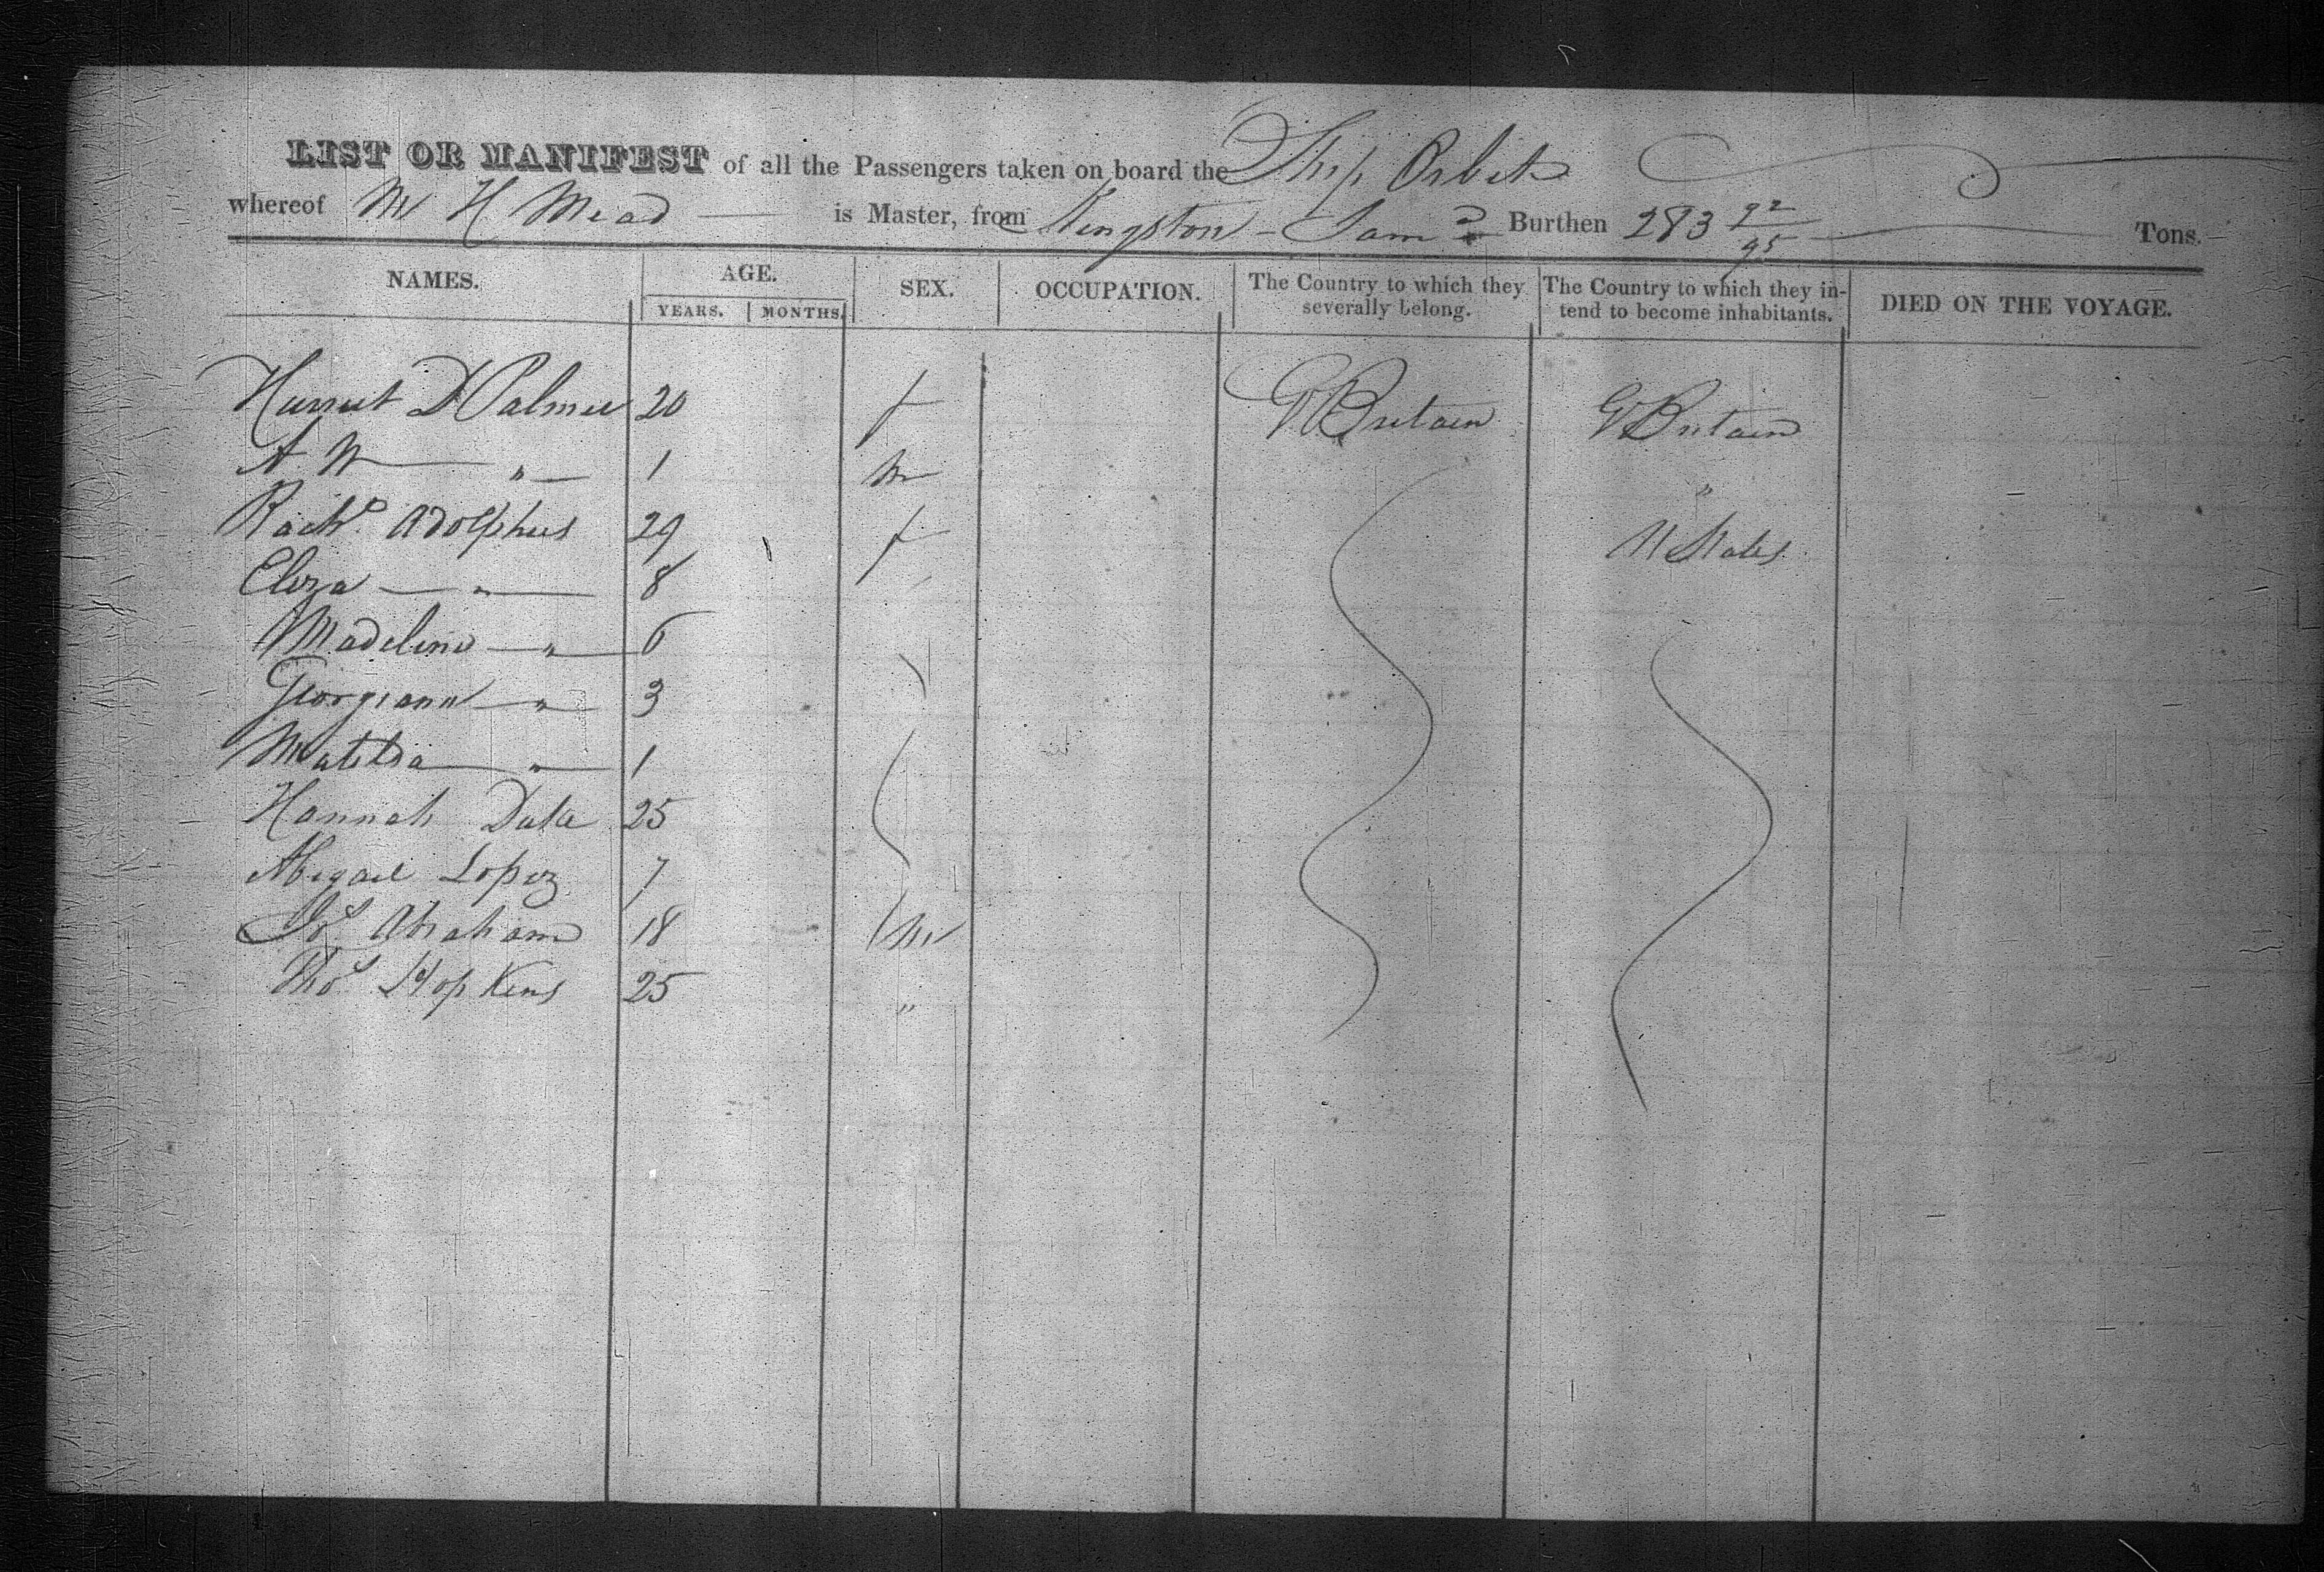 LIST OR MANIFEST of all the Passengers taken on board the Ship Orbit
whereof W H Mead is Master, from Kingston - Jama Burthen 283 92/95 Tons.
NAMES. AGE. SEX. OCCUPATION. The Country to which they severally belong. The Country to which they intend to become inhabitants. DIED ON THE VOYAGE.
YEARS. MONTHS.
Harriet D Palmer 20 f Gt Britain Gt Britain
A W — " — 1 m "
Rachl Adolphus 29 f U States
Eliza — " — 8
Madeline — " — 6
Georgiana — " — 3
Matilda — " — 1
Hannah 25
Abigail Lopez 7
Jos Abraham 18 m
Thos Hopkins 25 "